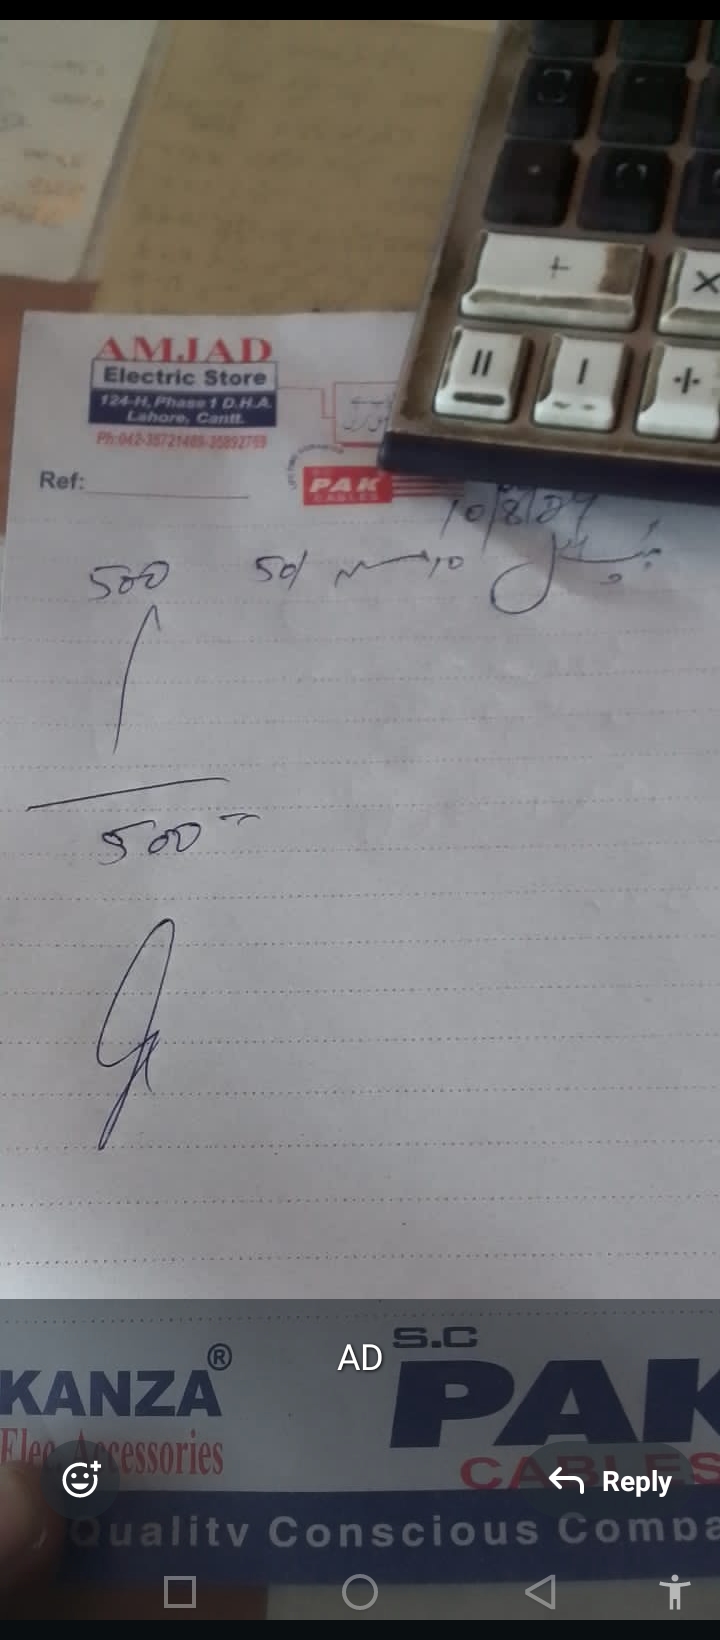 +
×
=
-
÷
AMJAD
Electric Store
124-H, Phase 1 D.H.A.
Lahore, Cantt.
Ph:042-35721469-35892759
Ref:
PAK
CABLES
10/8/
500 50/
500
KANZA®
Elec. Accessories
AD
S.C
PAK
CABLES
Reply
Quality Conscious Compa